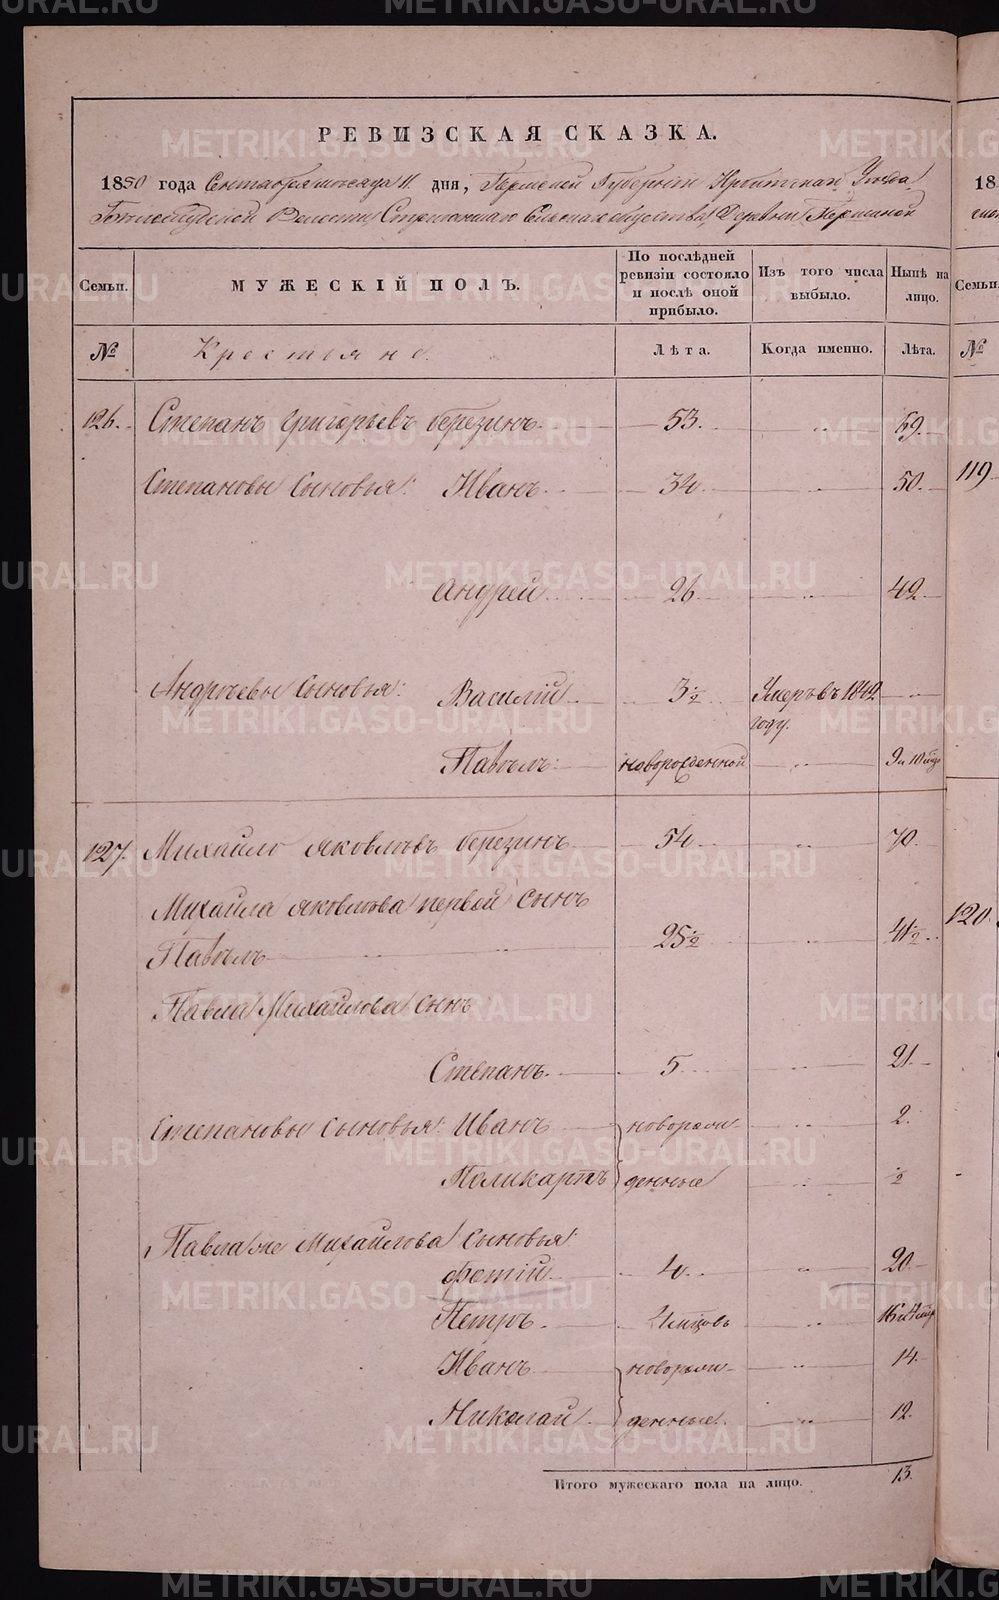 METRIKI.GASO-URAL.RU
РЕВИЗСКАЯ СКАЗКА.
1850 года Сентября месяца 11 дня, Пермской Губернии Ирбитскаго Уезда
Волости Сельскаго общества, Деревни
Семьи.
МУЖЕСКІЙ ПОЛЪ.
По послѣдней ревизіи состояло и послѣ оной прибыло.
Изъ того числа выбыло.
Нынѣ на лицо.
№
Крестьяне.
Лѣта.
Когда именно.
Лѣта.
126. Степанъ Григорьевъ Березинъ 53. 69.
Степановы Сыновья: Иванъ 34. 50.
Андрей 26 42.
Андреевы Сыновья: Василій 3 ½ Умеръ въ 1842
году.
Павелъ новорожденной 9 и 10 мцв
127. Михайло Яковлевъ Березинъ 54 70.
Михайла Яковлева первой сынъ
Павелъ 25½ 41½
Павла Михайлова сынъ
Степанъ 5 21.
Степановы Сыновья: Иванъ новорож- 2.
Поликарпъ денные ½
Павла же Михайлова Сыновья:
Фотій 4. 20.
Петръ мцовъ
Иванъ новорож- 14.
Николай денные. 12.
Итого мужескаго пола на лицо. 13.
18
Семьи.
№
119
120.